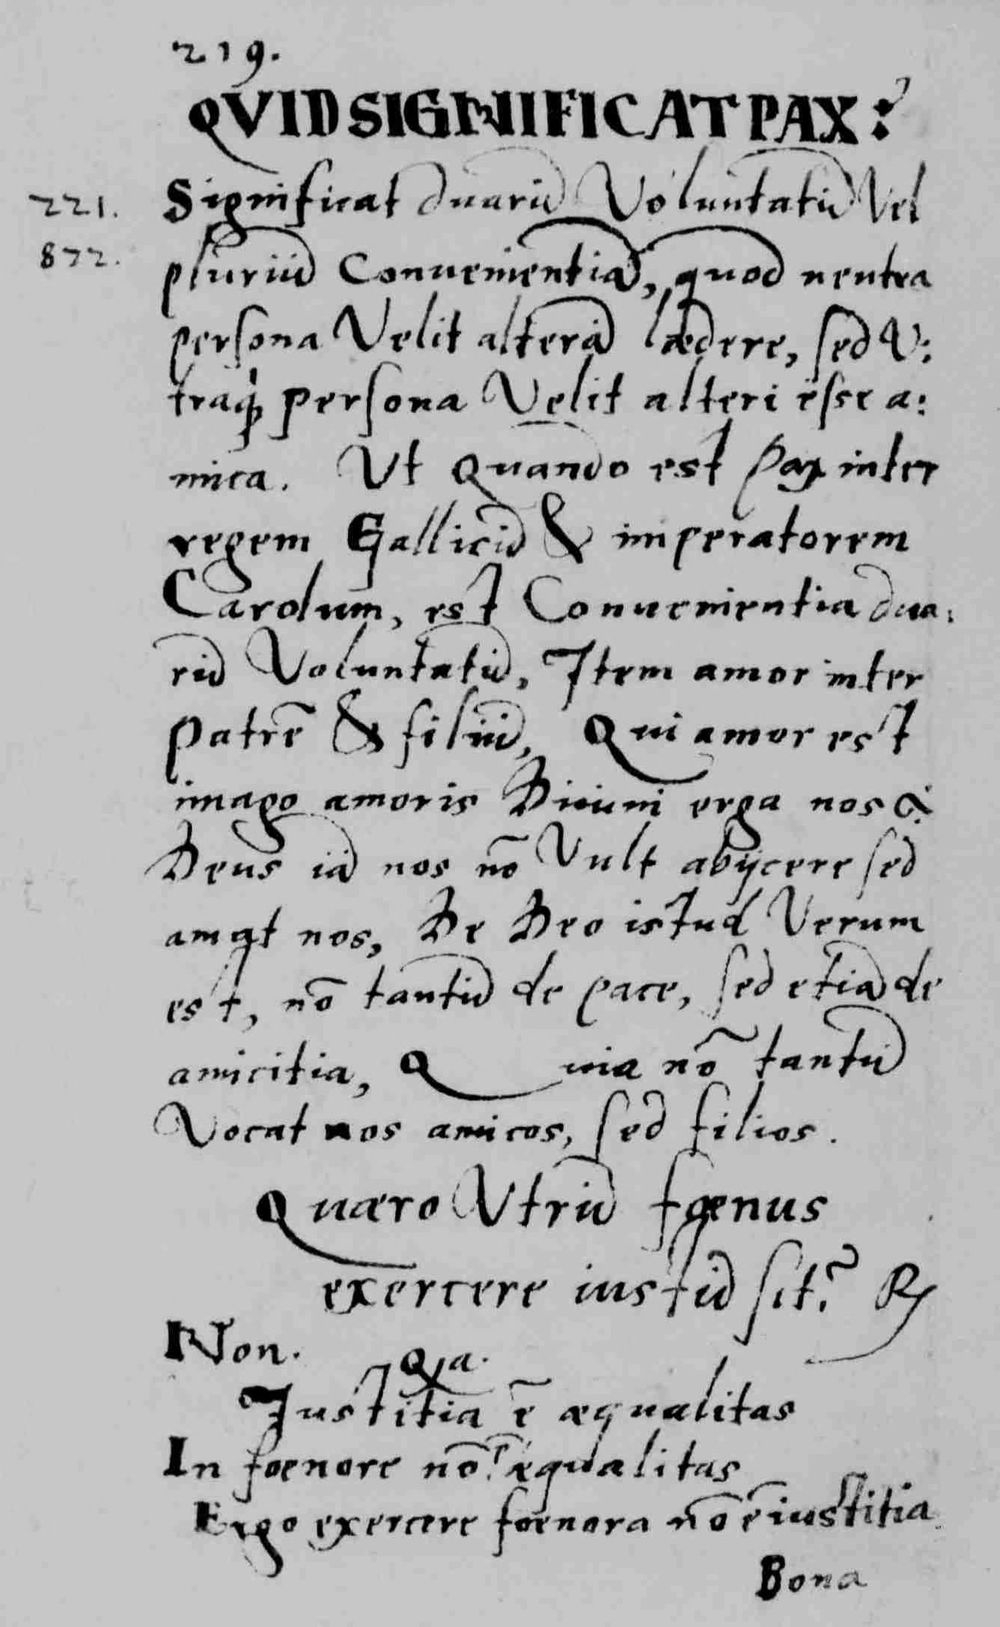 219.
QVID SIGNIFICAT PAX?
221. Significat duarū Voluntatū Vel
872. pluriū Conuenientiā, quod neutra
persona Velit alterā lædere, sed V:
traq; persona Velit alteri esse a:
mica. Ut Quando est pax inter
regem Gallicū & imperatorem
Carolum, est Conuenientia dua:
rū Voluntatū, Item amor inter
patrē & filiū, Qui amor est
imago amoris Diuini erga nos &
Deus iā nos nō Vult abijcere sed
amat nos, De Deo istud Verum
est, nō tantū de pace, sed etiā de
amicitia, Quia nō tantū
Vocat nos amicos, sed filios.
Quæro Vtrū fœnus
exercere iustū sit? R
Non. Qa.
Justitia ē æqualitas
In foenore nō ē æqualitas
Ergo exercere foenora nō ē iustitia
Bona